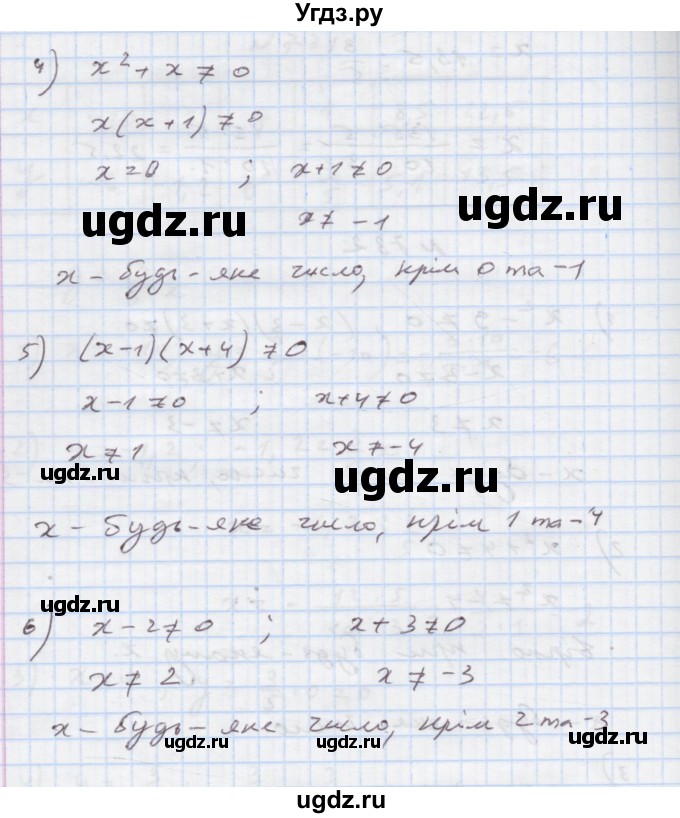 Угдз.ру
4) x² + x ≠ 0
x(x+1) ≠ 0
x = 0 ; x+1 ≠ 0
ugdz.ru ugdz.ru
x ≠ -1
x - будь-яке число, крім 0 та -1
5) (x-1)(x+4) ≠ 0
x-1 ≠ 0 ; x+4 ≠ 0
x ≠ 1 x ≠ -4
ugdz.ru ugdz.ru
x - будь-яке число, крім 1 та -4
ugdz.ru
6) x-2 ≠ 0 ; x+3 ≠ 0
x ≠ 2 x ≠ -3
x - будь-яке число, крім 2 та -3
ugdz.ru ugdz.ru ugdz.ru
ugdz.ru